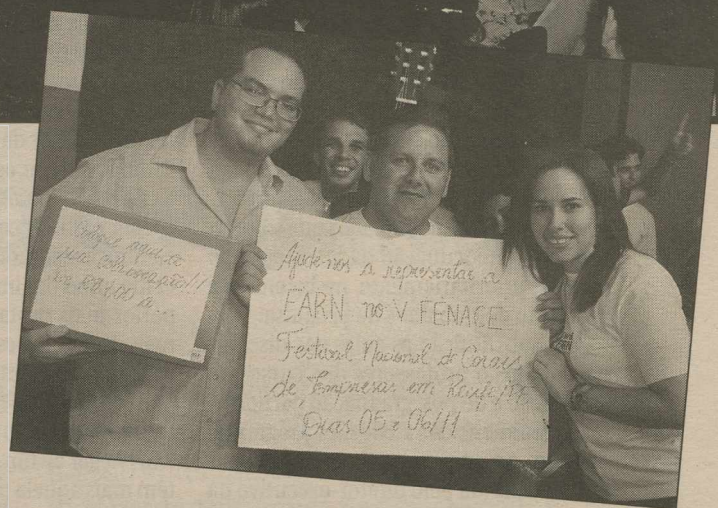 aqui
sua colaboração!!
Ajude-nos a representar a
FARN no V FENACE
Festival Nacional de Corais
de Empresas em Recife/PE
Dias 05 e 06/11